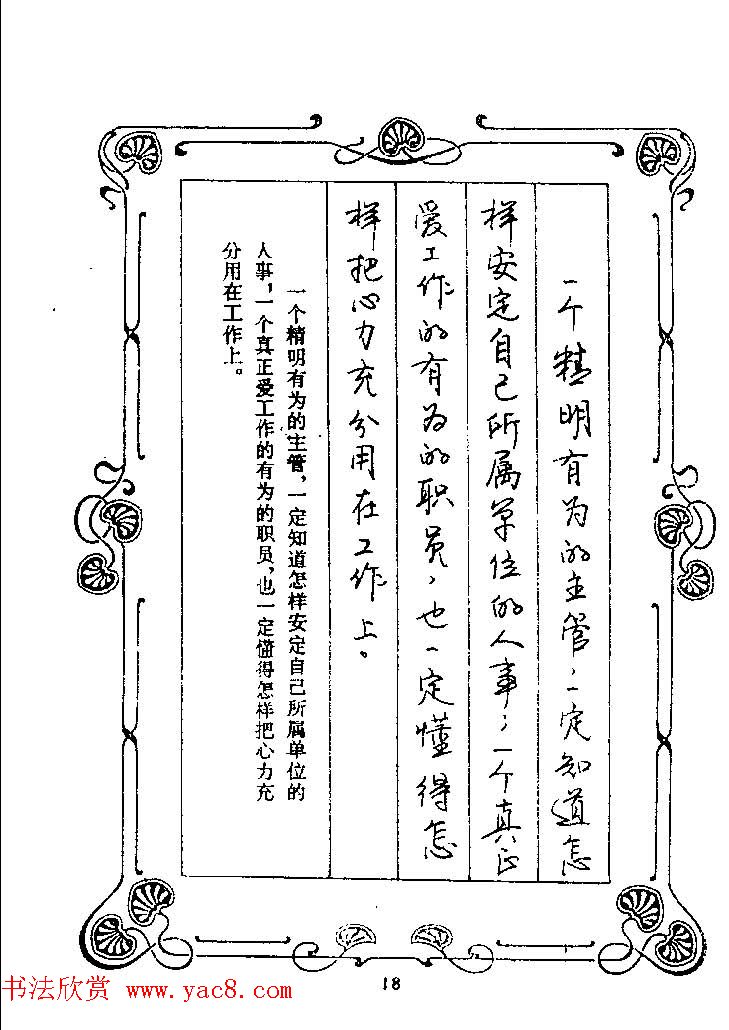 一个精明有为的主管，一定知道怎
样安定自己所属单位的人事；一个真正
爱工作的有为的职员，也一定懂得怎
样把心力充分用在工作上。
一个精明有为的主管，一定知道怎样安定自己所属单位的
人事，一个真正爱工作的有为的职员，也一定懂得怎样把心力充
分用在工作上。
18
书法欣赏 www.yac8.com